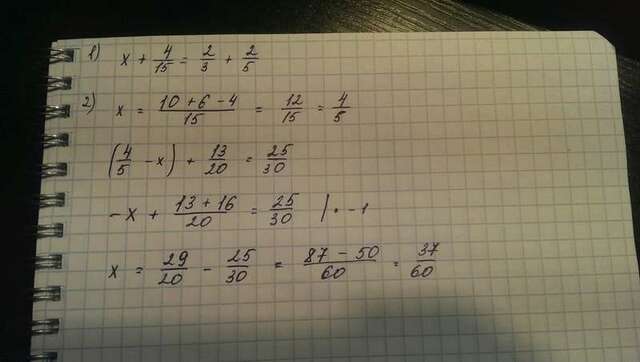 1) x + 4/15 = 2/3 + 2/5
2) x = (10 + 6 - 4)/15 = 12/15 = 4/5
(4/5 - x) + 13/20 = 25/30
-x + (13 + 16)/20 = 25/30 | · -1
x = 29/20 - 25/30 = (87 - 50)/60 = 37/60